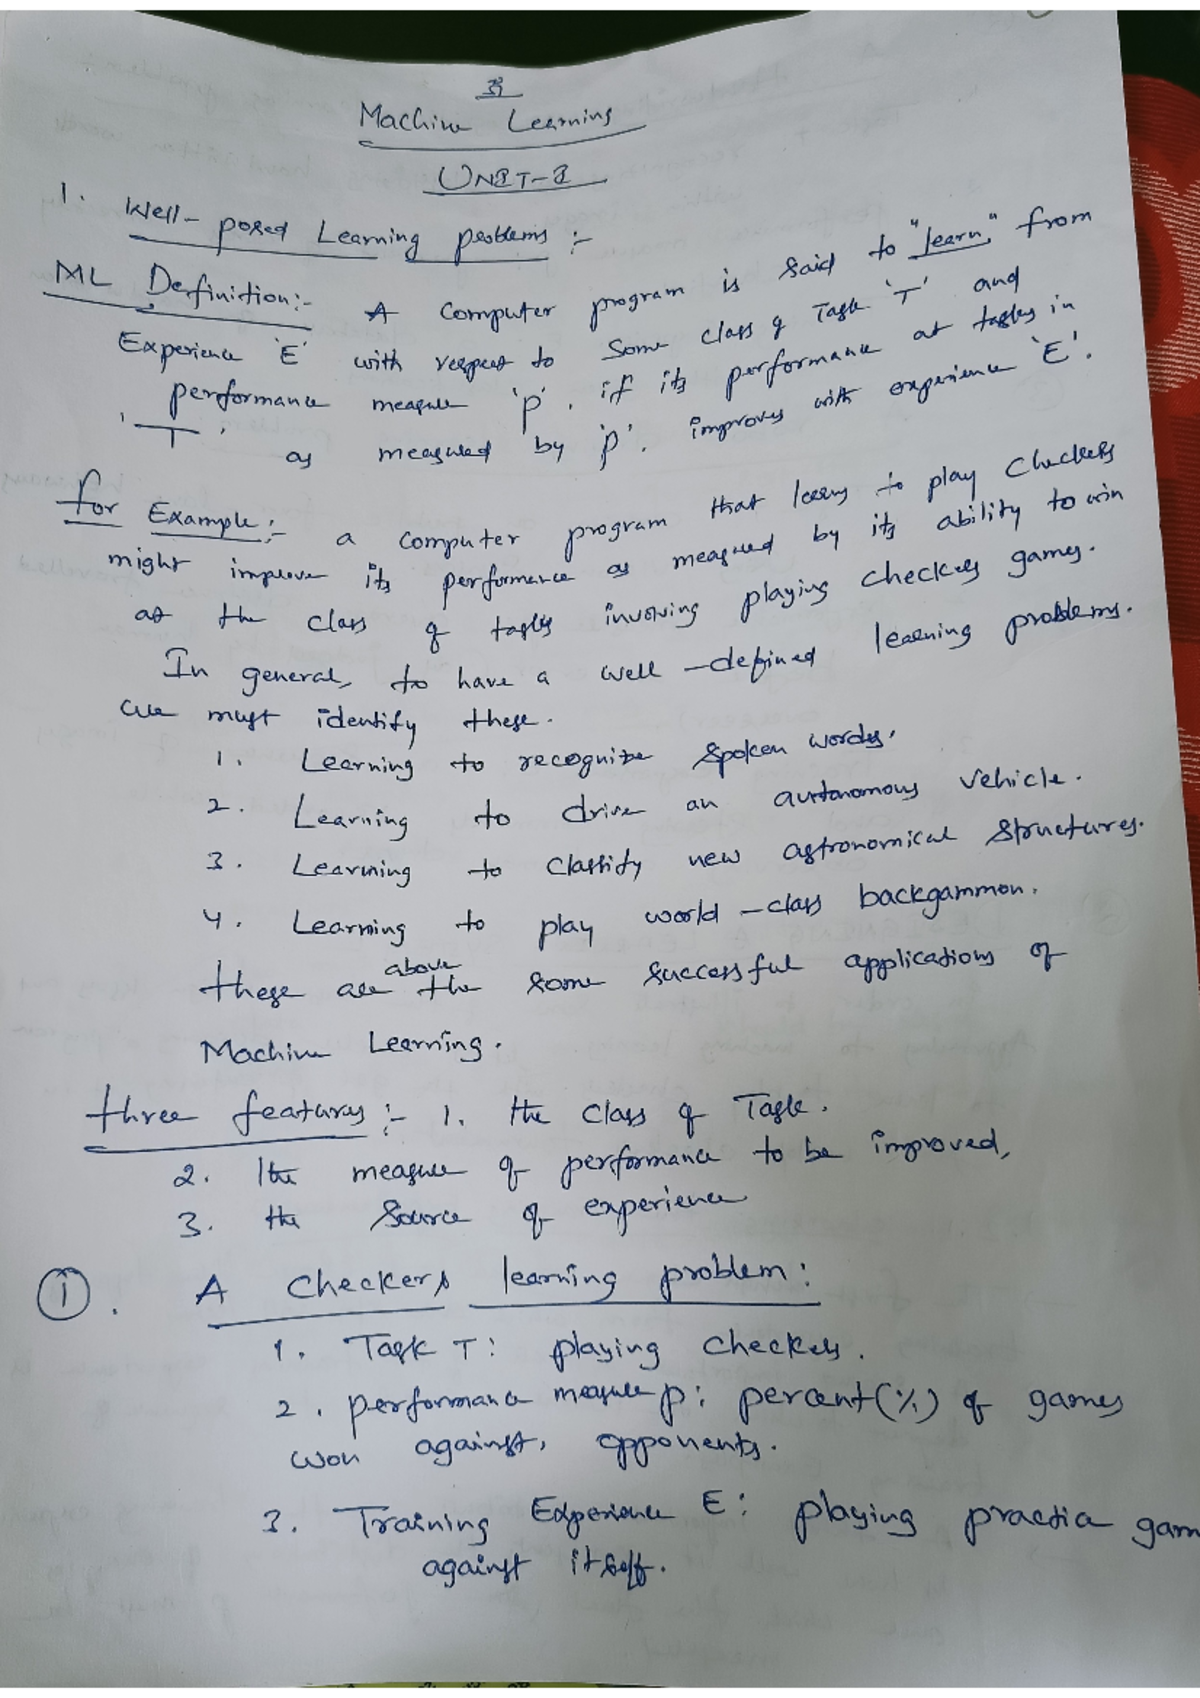 ॐ
Machine Learning
UNIT-I
1. Well-posed Learning problems :-
ML Definition:- A computer program is said to "learn" from
Experience 'E' with respect to some class of Task 'T' and
performance measure 'p', if its performance at tasks in
'T' as measured by 'p'. improves with experience 'E'.
for Example:- a computer program that learns to play checkers
might improve its performance as measured by its ability to win
at the class of tasks involving playing checkers games.
In general, to have a well-defined learning problems.
we must identify these.
1. Learning to recognize spoken words.
2. Learning to drive an autonomous vehicle.
3. Learning to classify new astronomical structures.
4. Learning to play world-class backgammon.
these are the above some successful applications of
Machine Learning.
three features :- 1. the class of Task.
2. the measure of performance to be improved,
3. the source of experience
1. A checkers learning problem:
1. Task T: playing checkers.
2. performance measure p: percent(%) of games
won against, opponents.
3. Training Experience E: playing practice gam
against itself.